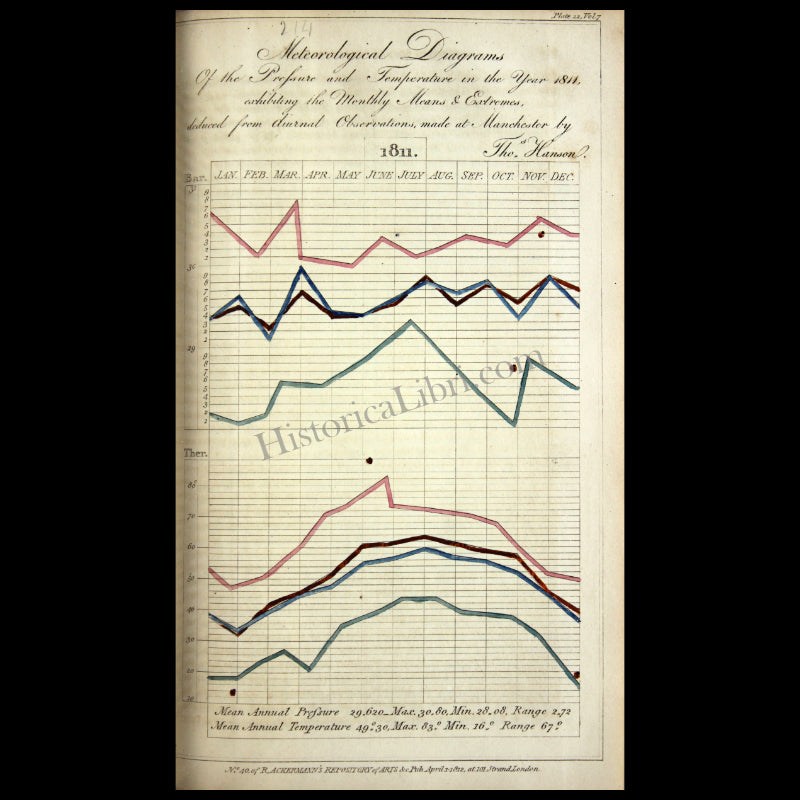 214
Plate 22, Vol 7
Meteorological Diagrams
Of the Preſsure and Temperature in the Year 1811,
exhibiting the Monthly Means & Extremes,
deduced from diurnal Observations, made at Manchester by
1811. Thos. Hanson.
Bar. JAN. FEB. MAR. APR. MAY JUNE JULY AUG. SEP. OCT. NOV. DEC.
31
9
8
7
6
5
4
3
2
1
30
9
8
7
6
5
4
3
2
1
29
9
8
7
6
5
4
3
2
1
HistoricaLibri.com
Ther.
80
70
60
50
40
30
20
10
Mean Annual Preſsure 29.620_Max. 30.80, Min. 28.08, Range 2.72
Mean Annual Temperature 49.°30, Max. 83.° Min. 16.° Range 67.°
No. 40 of R. ACKERMANN'S REPOSITORY of ARTS &c. Pub. April 1. 1812, at 101 Strand, London.